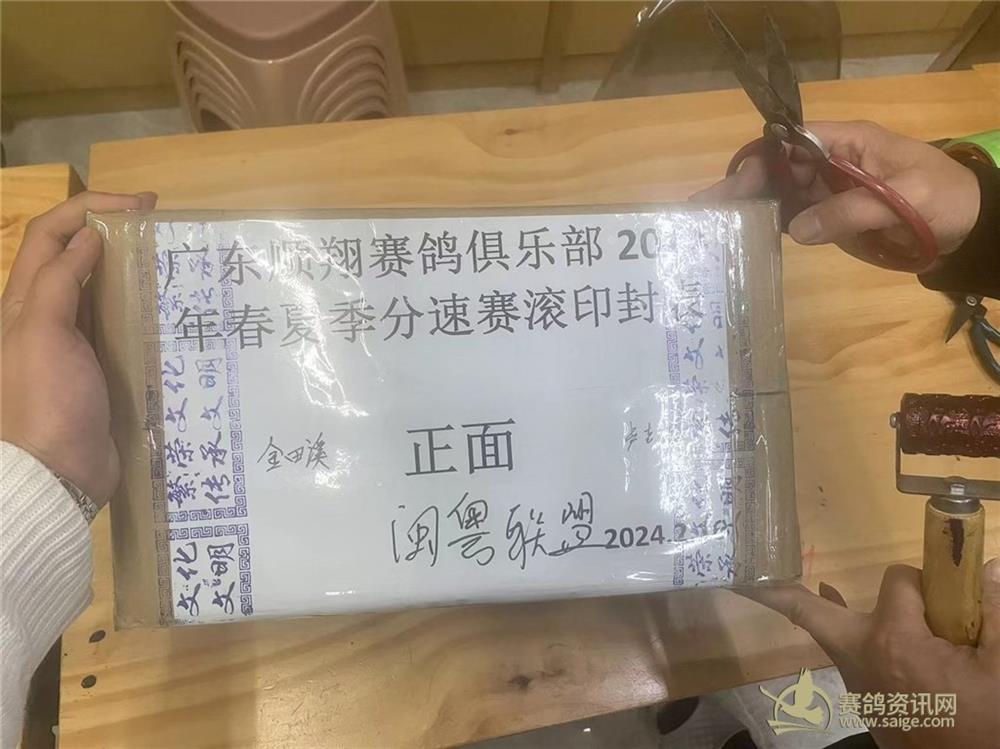 广东顺翔赛鸽俱乐部 20
年春夏季分速赛滚印封
正面
金田溪
闽粤联盟 2024.2
繁荣文化
传承文明
文化
文明
荣文化
赛鸽资讯网
www.saige.com